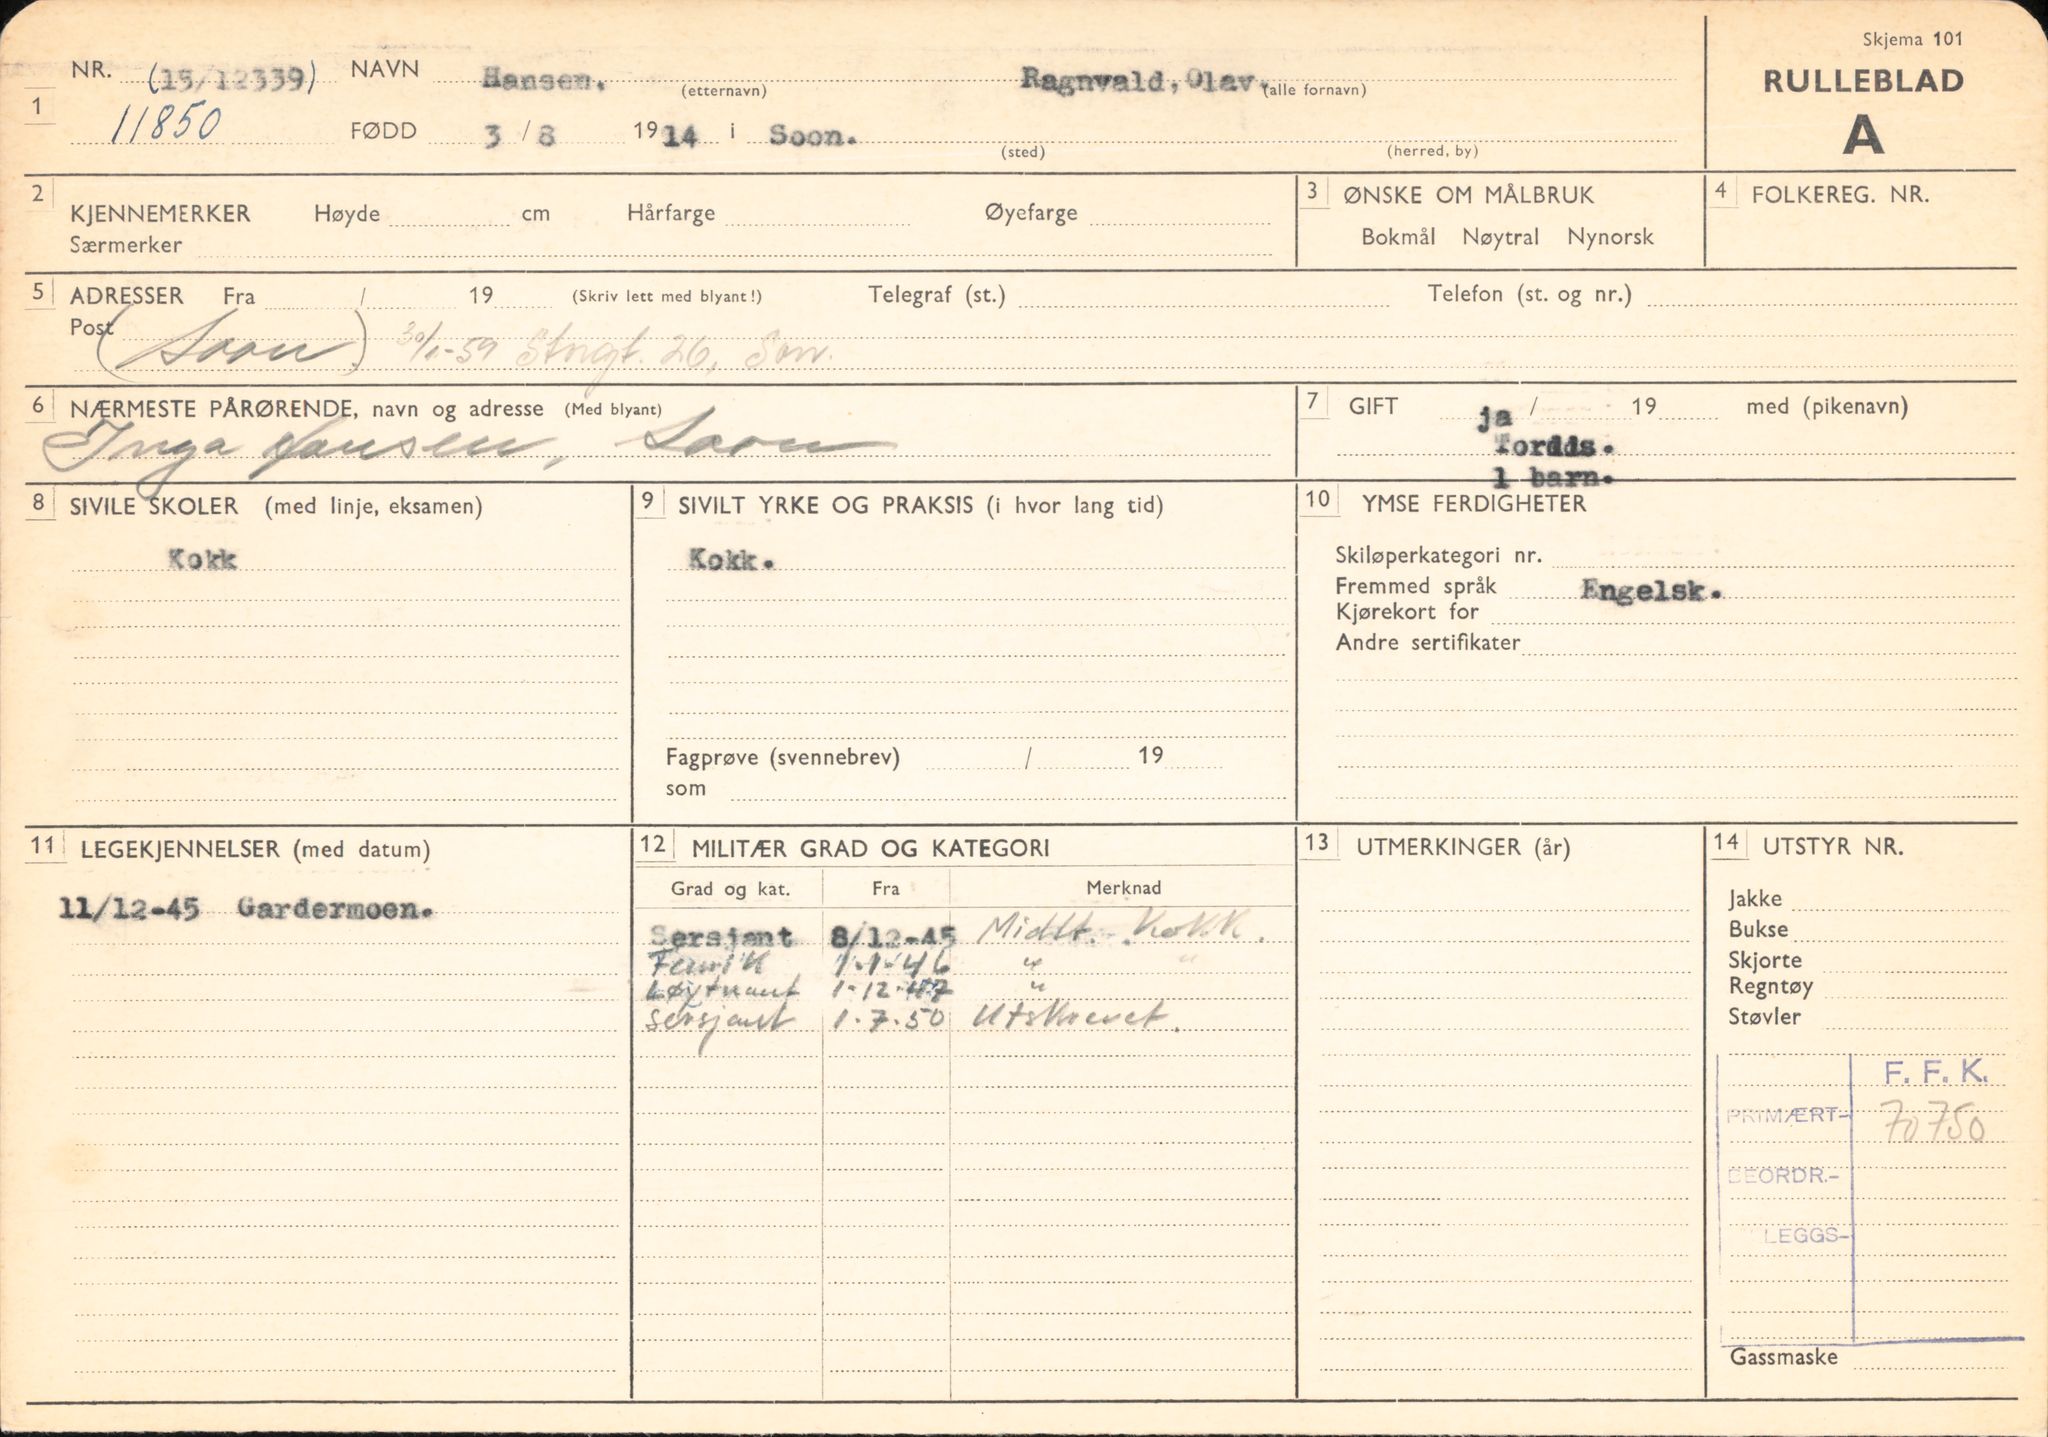 Skjema 101
RULLEBLAD
A
1 NR. (15/12339) NAVN Hansen. (etternavn) Ragnvald, Olav. (alle fornavn)
11850 FØDD 3 / 8 1914 i Soon. (sted) (herred, by)
2 KJENNEMERKER Høyde cm Hårfarge Øyefarge
Særmerker
3 ØNSKE OM MÅLBRUK
Bokmål Nøytral Nynorsk
4 FOLKEREG. NR.
5 ADRESSER Fra / 19 (Skriv lett med blyant!) Telegraf (st.) Telefon (st. og nr.)
Post (Soon) 30/1-59 Storgt. 26, Son.
6 NÆRMESTE PÅRØRENDE, navn og adresse (Med blyant)
Inga Hansen, Soon
7 GIFT ja / 19 med (pikenavn)
Tordds.
1 barn.
8 SIVILE SKOLER (med linje, eksamen)
Kokk
9 SIVILT YRKE OG PRAKSIS (i hvor lang tid)
Kokk.
Fagprøve (svennebrev) / 19
som
10 YMSE FERDIGHETER
Skiløperkategori nr.
Fremmed språk Engelsk.
Kjørekort for
Andre sertifikater
11 LEGEKJENNELSER (med datum)
11/12-45 Gardermoen.
12 MILITÆR GRAD OG KATEGORI
Grad og kat. Fra Merknad
Sersjant 8/12-45 Midlt. Kokk.
Fenrik 1-1-46 " "
Løytnant 1-12-47 "
Sersjant 1-7-50 Utskrevet.
13 UTMERKINGER (år)
14 UTSTYR NR.
Jakke
Bukse
Skjorte
Regntøy
Støvler
F. F. K.
PRIMÆRT- 70750
BEORDR.-
LEGGS-
Gassmaske